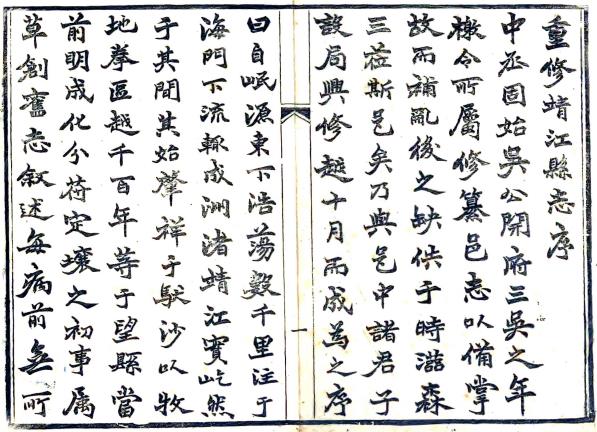 重修靖江縣志序
中丞固始吳公開府三吳之年
檄令所屬修纂邑志以備掌
故而補亂後之缺佚于時滋森
三莅斯邑矣乃與邑中諸君子
設局興修越十月而成為之序
一
曰自岷源東下浩蕩數千里注于
海門下流輒成洲渚靖江實屹然
于其間其始肇祥于馱沙以牧
地拳區越千百年等于望縣當
前明成化分苻定壤之初事属
草創舊志敘述每病前無所